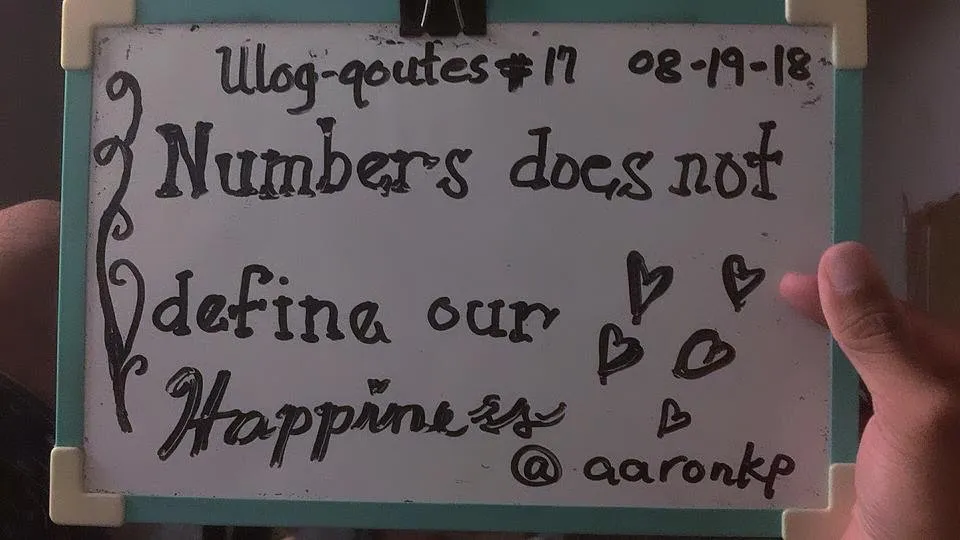 Ulog-qoutes #17 08-19-18
Numbers does not
define our
Happiness
@aaronkp